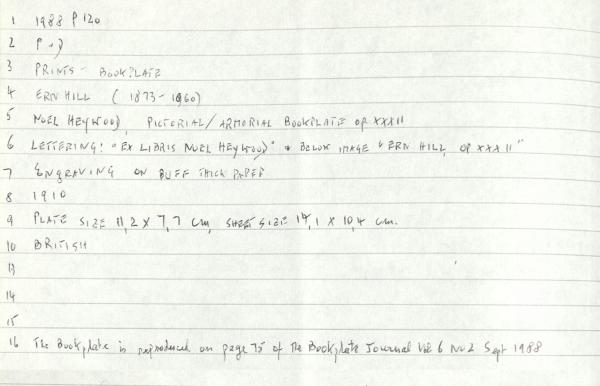 1 1988 P 120
2 P + D
3 PRINTS - BOOKPLATE
4 ERN HILL (1873-1960)
5 NOEL HEYWOOD, PICTORIAL/ARMORIAL BOOKPLATE OP XXXII
6 LETTERING: "EX LIBRIS NOEL HEYWOOD" + BELOW IMAGE "ERN HILL, OP XXXII"
7 ENGRAVING ON BUFF THICK PAPER
8 1910
9 PLATE SIZE 11,2 X 7,7 cm, SHEET SIZE 14,1 X 10,4 cm.
10 BRITISH
13
14
15
16 The Bookplate is reproduced on page 75 of The Bookplate Journal Vol 6 No 2 Sept 1988